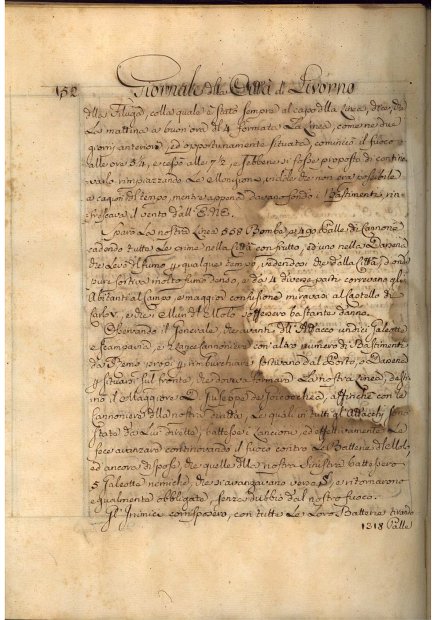 152 Giornale della Città di Livorno
della Filuga, colla quale è stato sempre al capo della Linea,
La mattina a buon'ora di 4 formata La Linea, come ne due
giorni anteriori, ed opportunamente situata, cominciò il fuoco
alle ore 5¼, e cessò alle 7½, e sebbene si fosse proposto di conti-
varlo rimpiazzando Le Monizioni, vidde che non era possibile
a cagion del tempo, mentre appena davan fondo i Bastimenti, rin-
frescava il vento dall'E.N.E.
Sparò La nostra Linea 558 Bombe, e 490 Palle di Cannone
cadendo tutte Le prime nella Città con frutto, ed uno nella Darsena
che levò del fumo per qualque tempo, vedendosi che dalla Città
pure sortiva molto fumo denso, e da 4 diverse parti correvano gli
Abitanti al Campo, e maggior confusione miravasi al Castello di
Carlo V, e che i Mulini del Molo soffersero bastante danno.
Osservando il Generale, che avanti dell'Attacco undici Galeotte
e stampavia, e Lance Cannoniere con altro numero di Bastimenti
da Remo proprj per imbarcare sortivano dal Porto, o Darsena
e si situavan sul fronte, che doveva formare La nostra Linea, desti-
nò il Maggiore D. Giuseppe de Goicoechea, affinchè con le
Cannoniere della nostra dritta, Le quali in tutti gl'Attacchi sono
state da Lui dirette, battesse i Lancioni, ed effettivamente Le
fece avanzare continovando il fuoco contro Le Batterie del Molo,
ed ancora di spose, che quelle della nostra Sinistra battessero
5 Galeotte nemiche, che si avanzavano verso S., e ritornarono
equalmente obbligate senza dubbio dal nostro fuoco.
Gl'Inimici corrisposero, con tutte Le Loro Batterie tirando
1318 Palle